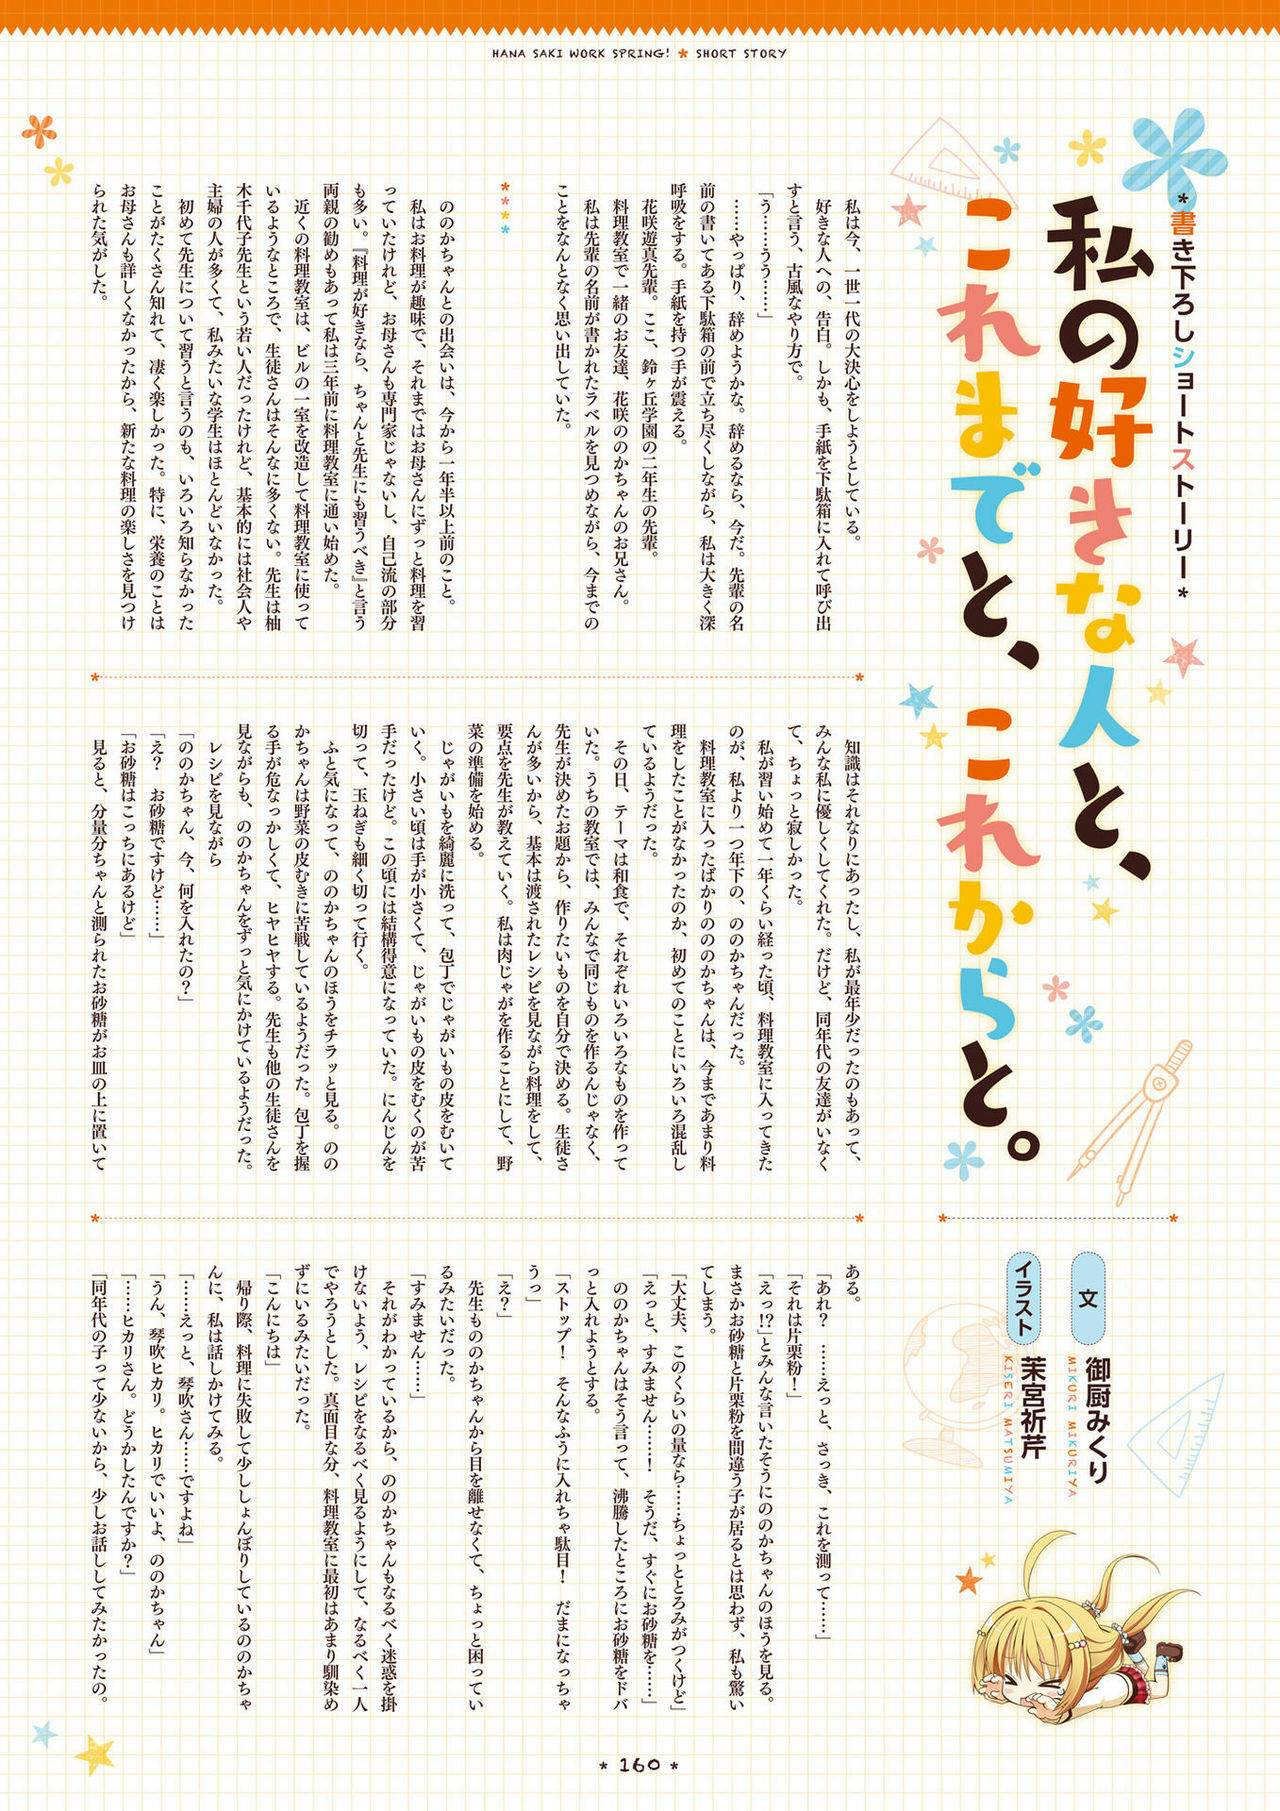 HANA SAKI WORK SPRING! * SHORT STORY
*書き下ろしショートストーリー*
私の好きな人と、
これまでと、これからと。
文
御厨みくり
MIKURI MIKURIYA
イラスト
茉宮祈芹
KISERI MATSUMIYA
私は今、一世一代の大決心をしようとしている。
好きな人への、告白。しかも、手紙を下駄箱に入れて呼び出
すと言う、古風なやり方で。
「う……うう……」
……やっぱり、辞めようかな。辞めるなら、今だ。先輩の名
前の書いてある下駄箱の前で立ち尽くしながら、私は大きく深
呼吸をする。手紙を持つ手が震える。
花咲遊真先輩。ここ、鈴ヶ丘学園の二年生の先輩。
料理教室で一緒のお友達、花咲ののかちゃんのお兄さん。
私は先輩の名前が書かれたラベルを見つめながら、今までの
ことをなんとなく思い出していた。
****
ののかちゃんとの出会いは、今から一年半以上前のこと。
私はお料理が趣味で、それまではお母さんにずっと料理を習
っていたけれど、お母さんも専門家じゃないし、自己流の部分
も多い。『料理が好きなら、ちゃんと先生にも習うべき』と言う
両親の勧めもあって私は三年前に料理教室に通い始めた。
近くの料理教室は、ビルの一室を改造して料理教室に使って
いるようなところで、生徒さんはそんなに多くない。先生は柚
木千代子先生という若い人だったけれど、基本的には社会人や
主婦の人が多くて、私みたいな学生はほとんどいなかった。
初めて先生について習うと言うのも、いろいろ知らなかった
ことがたくさん知れて、凄く楽しかった。特に、栄養のことは
お母さんも詳しくなかったから、新たな料理の楽しさを見つけ
られた気がした。
知識はそれなりにあったし、私が最年少だったのもあって、
みんな私に優しくしてくれた。だけど、同年代の友達がいなく
て、ちょっと寂しかった。
私が習い始めて一年くらい経った頃、料理教室に入ってきた
のが、私より一つ年下の、ののかちゃんだった。
料理教室に入ったばかりのののかちゃんは、今まであまり料
理をしたことがなかったのか、初めてのことにいろいろ混乱し
ているようだった。
その日、テーマは和食で、それぞれいろいろなものを作って
いた。うちの教室では、みんなで同じものを作るんじゃなく、
先生が決めたお題から、作りたいものを自分で決める。生徒さ
んが多いから、基本は渡されたレシピを見ながら料理をして、
要点を先生が教えていく。私は肉じゃがを作ることにして、野
菜の準備を始める。
じゃがいもを綺麗に洗って、包丁でじゃがいもの皮をむいて
いく。小さい頃は手が小さくて、じゃがいもの皮をむくのが苦
手だったけど。この頃には結構得意になっていた。にんじんを
切って、玉ねぎも細く切って行く。
ふと気になって、ののかちゃんのほうをチラッと見る。のの
かちゃんは野菜の皮むきに苦戦しているようだった。包丁を握
る手が危なっかしくて、ヒヤヒヤする。先生も他の生徒さんを
見ながらも、ののかちゃんをずっと気にかけているようだった。
レシピを見ながら
「ののかちゃん、今、何を入れたの？」
「え？　お砂糖ですけど……」
「お砂糖はこっちにあるけど」
見ると、分量分ちゃんと測られたお砂糖がお皿の上に置いて
ある。
「あれ？　……えっと、さっき、これを測って……」
「それは片栗粉！」
「えっ!?」とみんな言いたそうにののかちゃんのほうを見る。
まさかお砂糖と片栗粉を間違う子が居るとは思わず、私も驚い
てしまう。
「大丈夫、このくらいの量なら……ちょっととろみがつくけど」
「えっと、すみません………！　そうだ、すぐにお砂糖を……」
ののかちゃんはそう言って、沸騰したところにお砂糖をドバ
っと入れようとする。
「ストップ！　そんなふうに入れちゃ駄目！　だまになっちゃ
うっ」
「え？」
先生もののかちゃんから目を離せなくて、ちょっと困ってい
るみたいだった。
「すみません……」
それがわかっているから、ののかちゃんもなるべく迷惑を掛
けないよう、レシピをなるべく見るようにして、なるべく一人
でやろうとした。真面目な分、料理教室に最初はあまり馴染め
ずにいるみたいだった。
「こんにちは」
帰り際、料理に失敗して少ししょんぼりしているののかちゃ
んに、私は話しかけてみる。
「……えっと、琴吹さん……ですよね」
「うん、琴吹ヒカリ。ヒカリでいいよ、ののかちゃん」
「……ヒカリさん。どうかしたんですか？」
「同年代の子って少ないから、少しお話ししてみたかったの。
* 160 *